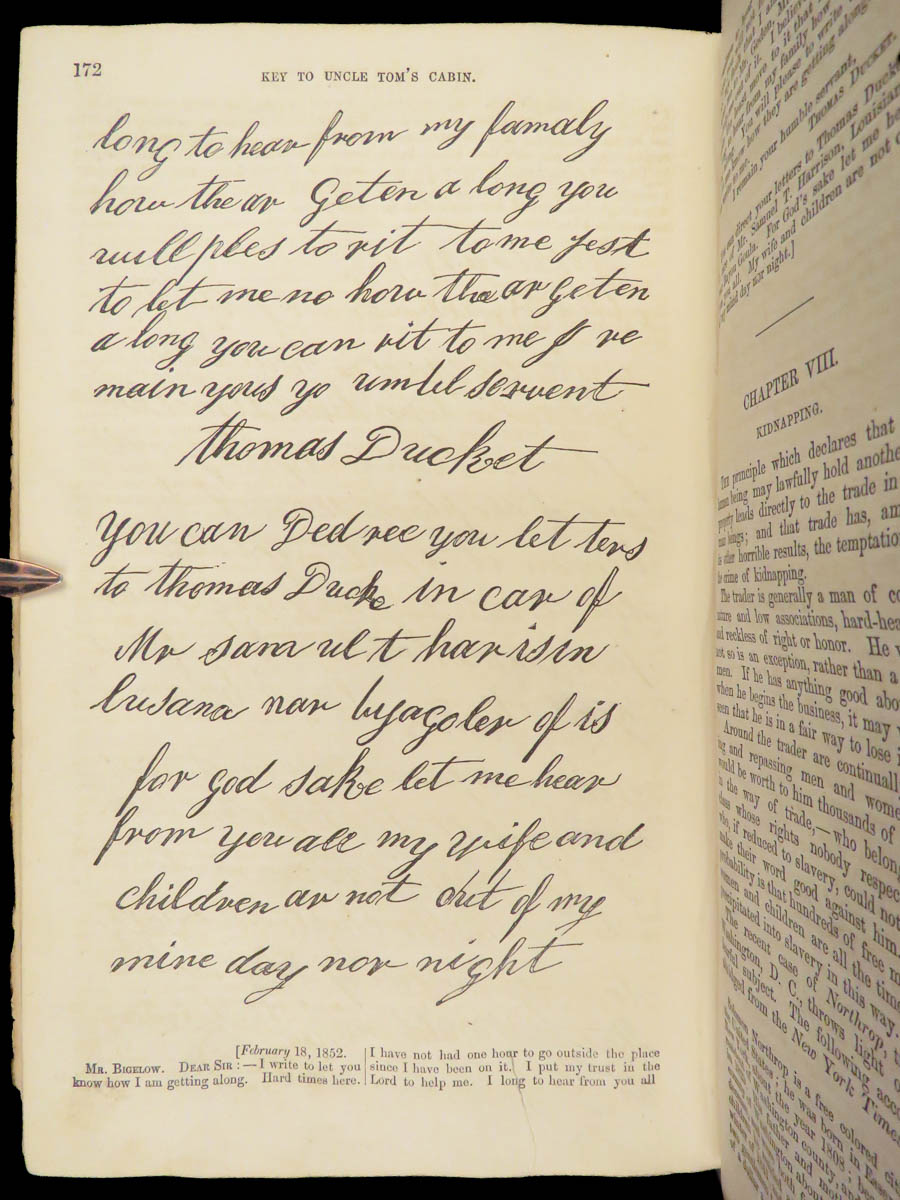 172
KEY TO UNCLE TOM'S CABIN.
long to hear from my famaly
how the ar Geten a long you
will ples to rit to me jest
to let me no how the ar geten
a long you can rit to me I re
main yous yo umbl servent
thomas Ducket
you can Ded ree you let ters
to thomas Ducke in car of
Mr samul t harisin
lusana nar byagoler of is
for god sake let me hear
from you all my wife and
children ar not out of my
mine day nor night
[February 18, 1852.
MR. BIGELOW. DEAR SIR:—I write to let you
know how I am getting along. Hard times here.
I have not had one hour to go outside the place
since I have been on it. I put my trust in the
Lord to help me. I long to hear from you all
to it that
from my family how
You will please to write
how they are getting along
I remain your humble servant,
THOMAS DUCKET.
direct your letters to Thomas Ducket
of Mr. Samuel T. Harrison, Louisiana
Bayou Goula. For God's sake let me
you all. My wife and children are not
mind day nor night.]
CHAPTER VIII.
KIDNAPPING.
THE principle which declares that
being may lawfully hold another
property leads directly to the trade in
beings; and that trade has,
other horrible results, the temptation
the crime of kidnapping.
The trader is generally a man of
nature and low associations,
and reckless of right or honor. He
not so is an exception, rather than a
men. If he has anything good
when he begins the business, it may
seen that he is in a fair way to lose
Around the trader are continually
and repassing men and women
would be worth to him thousands of
in the way of trade,—who belong
class whose rights nobody
who, if reduced to slavery, could not
make their word good against him.
probability is that hundreds of free
women and children are all the time
precipitated into slavery in this way.
The recent case of Northrop,
Washington, D. C., throws light
subject. The following
from the New York Times
Solomon Northrop is a free colored
United States; he was born in
about the year 1808;
Washington county,
father and